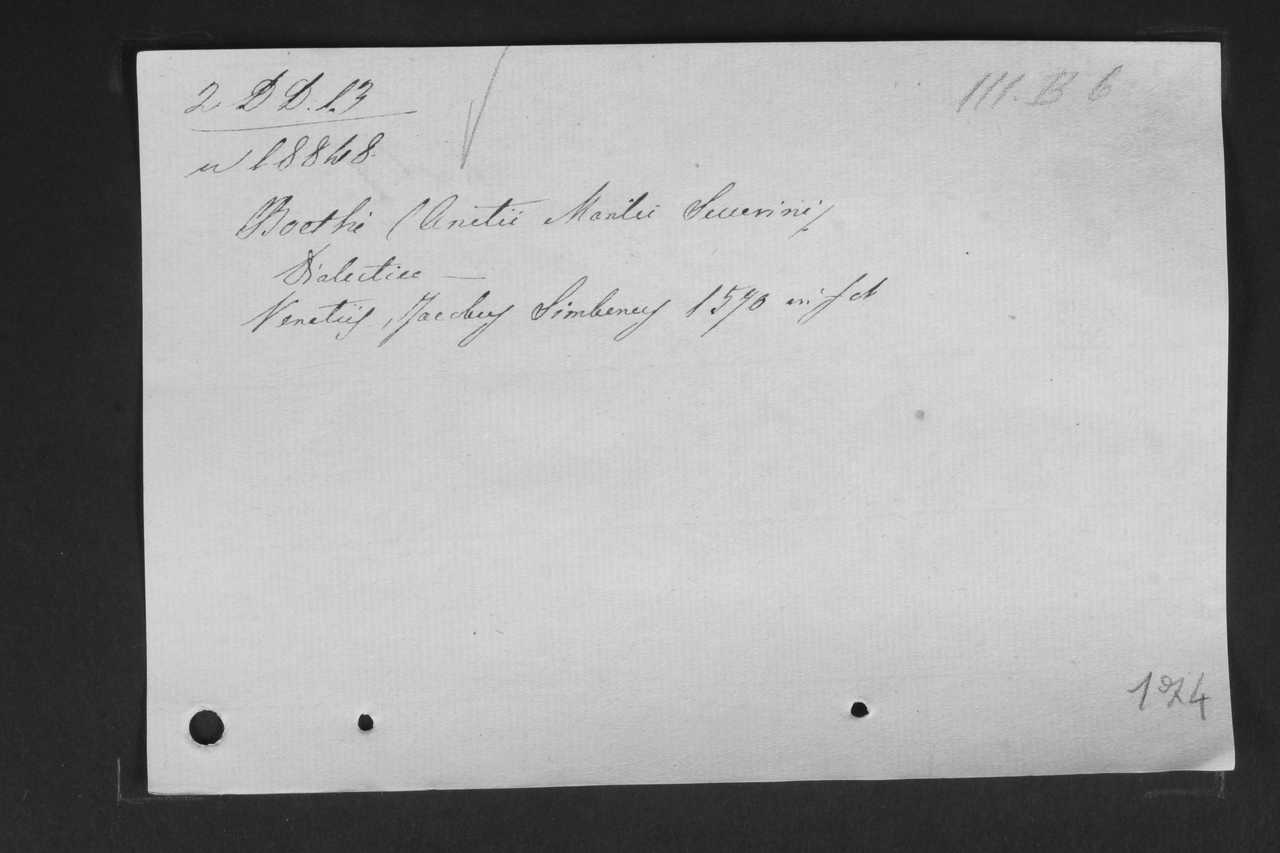 2 D D. 13
III. B 6
n 18848
Boethi (Anitii Manlii Severini)
Dialectica —
Venetiis, Jacobus Simbenus 1570 in fol
1974